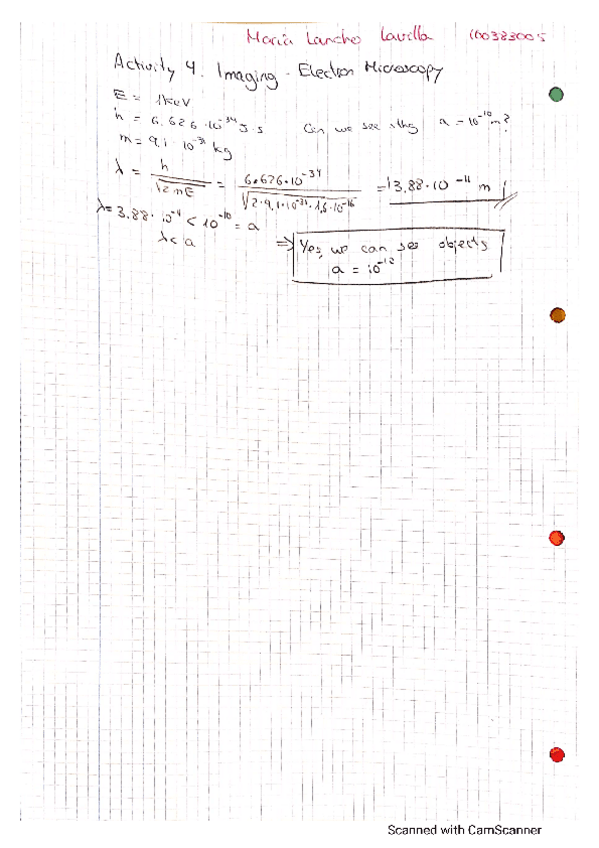 María Lancho Lavilla 100383005
Activity 4. Imaging - Electron Microscopy
E = 1keV
h = 6.626·10⁻³⁴ J·s Can we see sthg a = 10⁻¹⁰ m?
m = 9,1 · 10⁻³¹ kg
λ = h / √(2mE) = 6.626·10⁻³⁴ / √(2·9,1·10⁻³¹·1,6·10⁻¹⁶) = 3,88·10⁻¹¹ m
λ = 3.88 · 10⁻¹¹ < 10⁻¹⁰ = a
λ < a ⇒ Yes, we can see objects
a = 10⁻¹²
Scanned with CamScanner